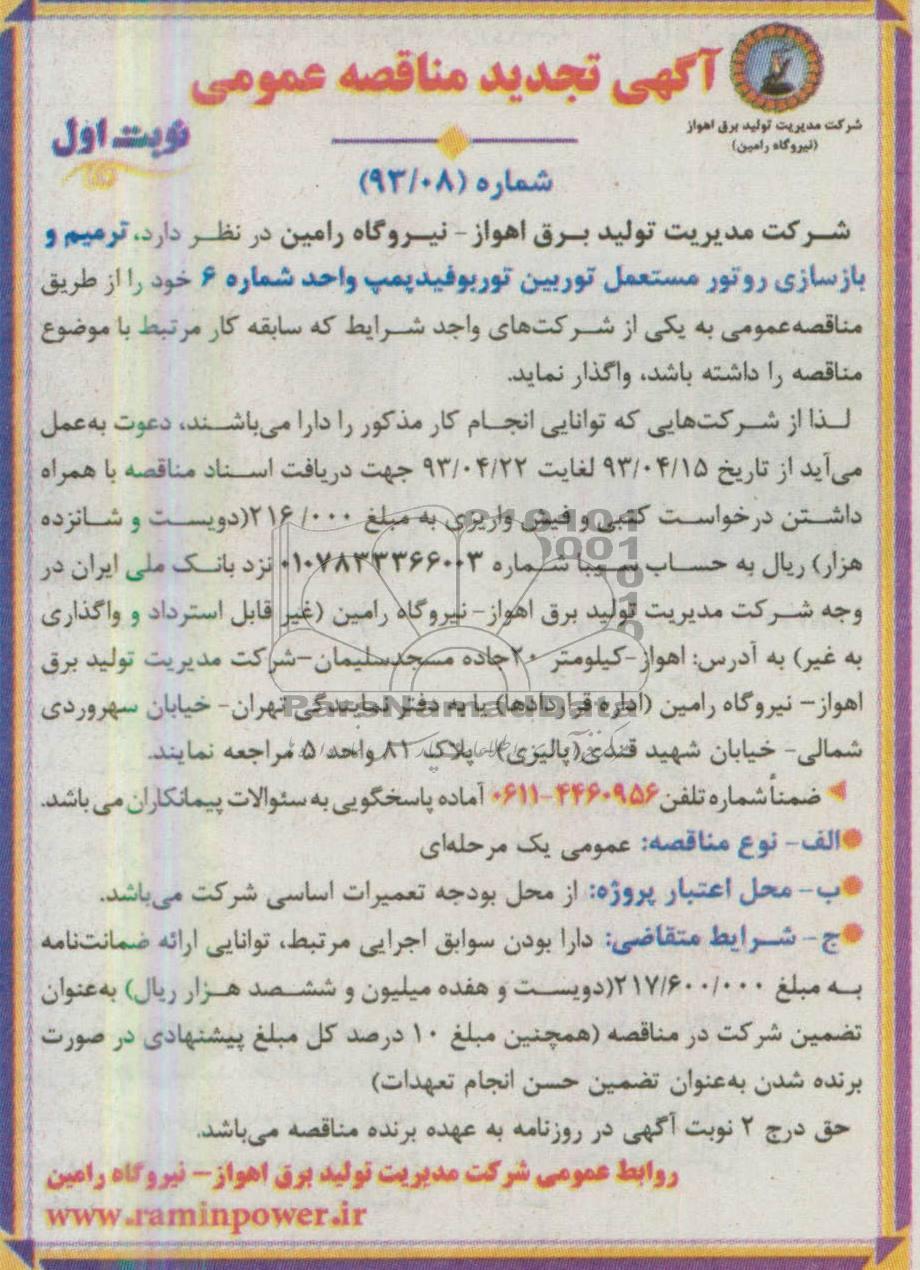 آگهی تجدید مناقصه عمومی
شرکت مدیریت تولید برق اهواز
(نیروگاه رامین)
نوبت اول
شماره (۹۳/۰۸)
شرکت مدیریت تولید برق اهواز - نیروگاه رامین در نظر دارد، ترمیم و
بازسازی روتور مستعمل توربین توربوفیدپمپ واحد شماره ۶ خود را از طریق
مناقصه‌عمومی به یکی از شرکت‌های واجد شرایط که سابقه کار مرتبط با موضوع
مناقصه را داشته باشد، واگذار نماید.
لذا از شرکت‌هایی که توانایی انجام کار مذکور را دارا می‌باشند، دعوت به‌عمل
می‌آید از تاریخ ۹۳/۰۴/۱۵ لغایت ۹۳/۰۴/۲۲ جهت دریافت اسناد مناقصه با همراه
داشتن درخواست کتبی و فیش واریزی به مبلغ ۲۱۶/۰۰۰(دویست و شانزده
هزار) ریال به حساب سیبا شماره ۰۱۰۷۸۳۳۳۶۶۰۰۳ نزد بانک ملی ایران در
وجه شرکت مدیریت تولید برق اهواز - نیروگاه رامین (غیر قابل استرداد و واگذاری
به غیر) به آدرس: اهواز -کیلومتر ۲۰جاده مسجدسلیمان-شرکت مدیریت تولید برق
اهواز- نیروگاه رامین (اداره قراردادها) یا به دفتر نمایندگی تهران- خیابان سهروردی
شمالی- خیابان شهید قندی(پالیزی)- پلاک ۸۱ واحد ۵ مراجعه نمایند.
ضمناً شماره تلفن ۴۴۶۰۹۵۶-۰۶۱۱ آماده پاسخگویی به سئوالات پیمانکاران می باشد.
الف- نوع مناقصه: عمومی یک مرحله‌ای
ب- محل اعتبار پروژه: از محل بودجه تعمیرات اساسی شرکت می‌باشد.
ج- شرایط متقاضی: دارا بودن سوابق اجرایی مرتبط، توانایی ارائه ضمانت‌نامه
به مبلغ ۲۱۷/۶۰۰/۰۰۰(دویست و هفده میلیون و ششصد هزار ریال) به‌عنوان
تضمین شرکت در مناقصه (همچنین مبلغ ۱۰ درصد کل مبلغ پیشنهادی در صورت
برنده شدن به‌عنوان تضمین حسن انجام تعهدات)
حق درج ۲ نوبت آگهی در روزنامه به عهده برنده مناقصه می‌باشد.
روابط عمومی شرکت مدیریت تولید برق اهواز- نیروگاه رامین
www.raminpower.ir
ParsNamadData